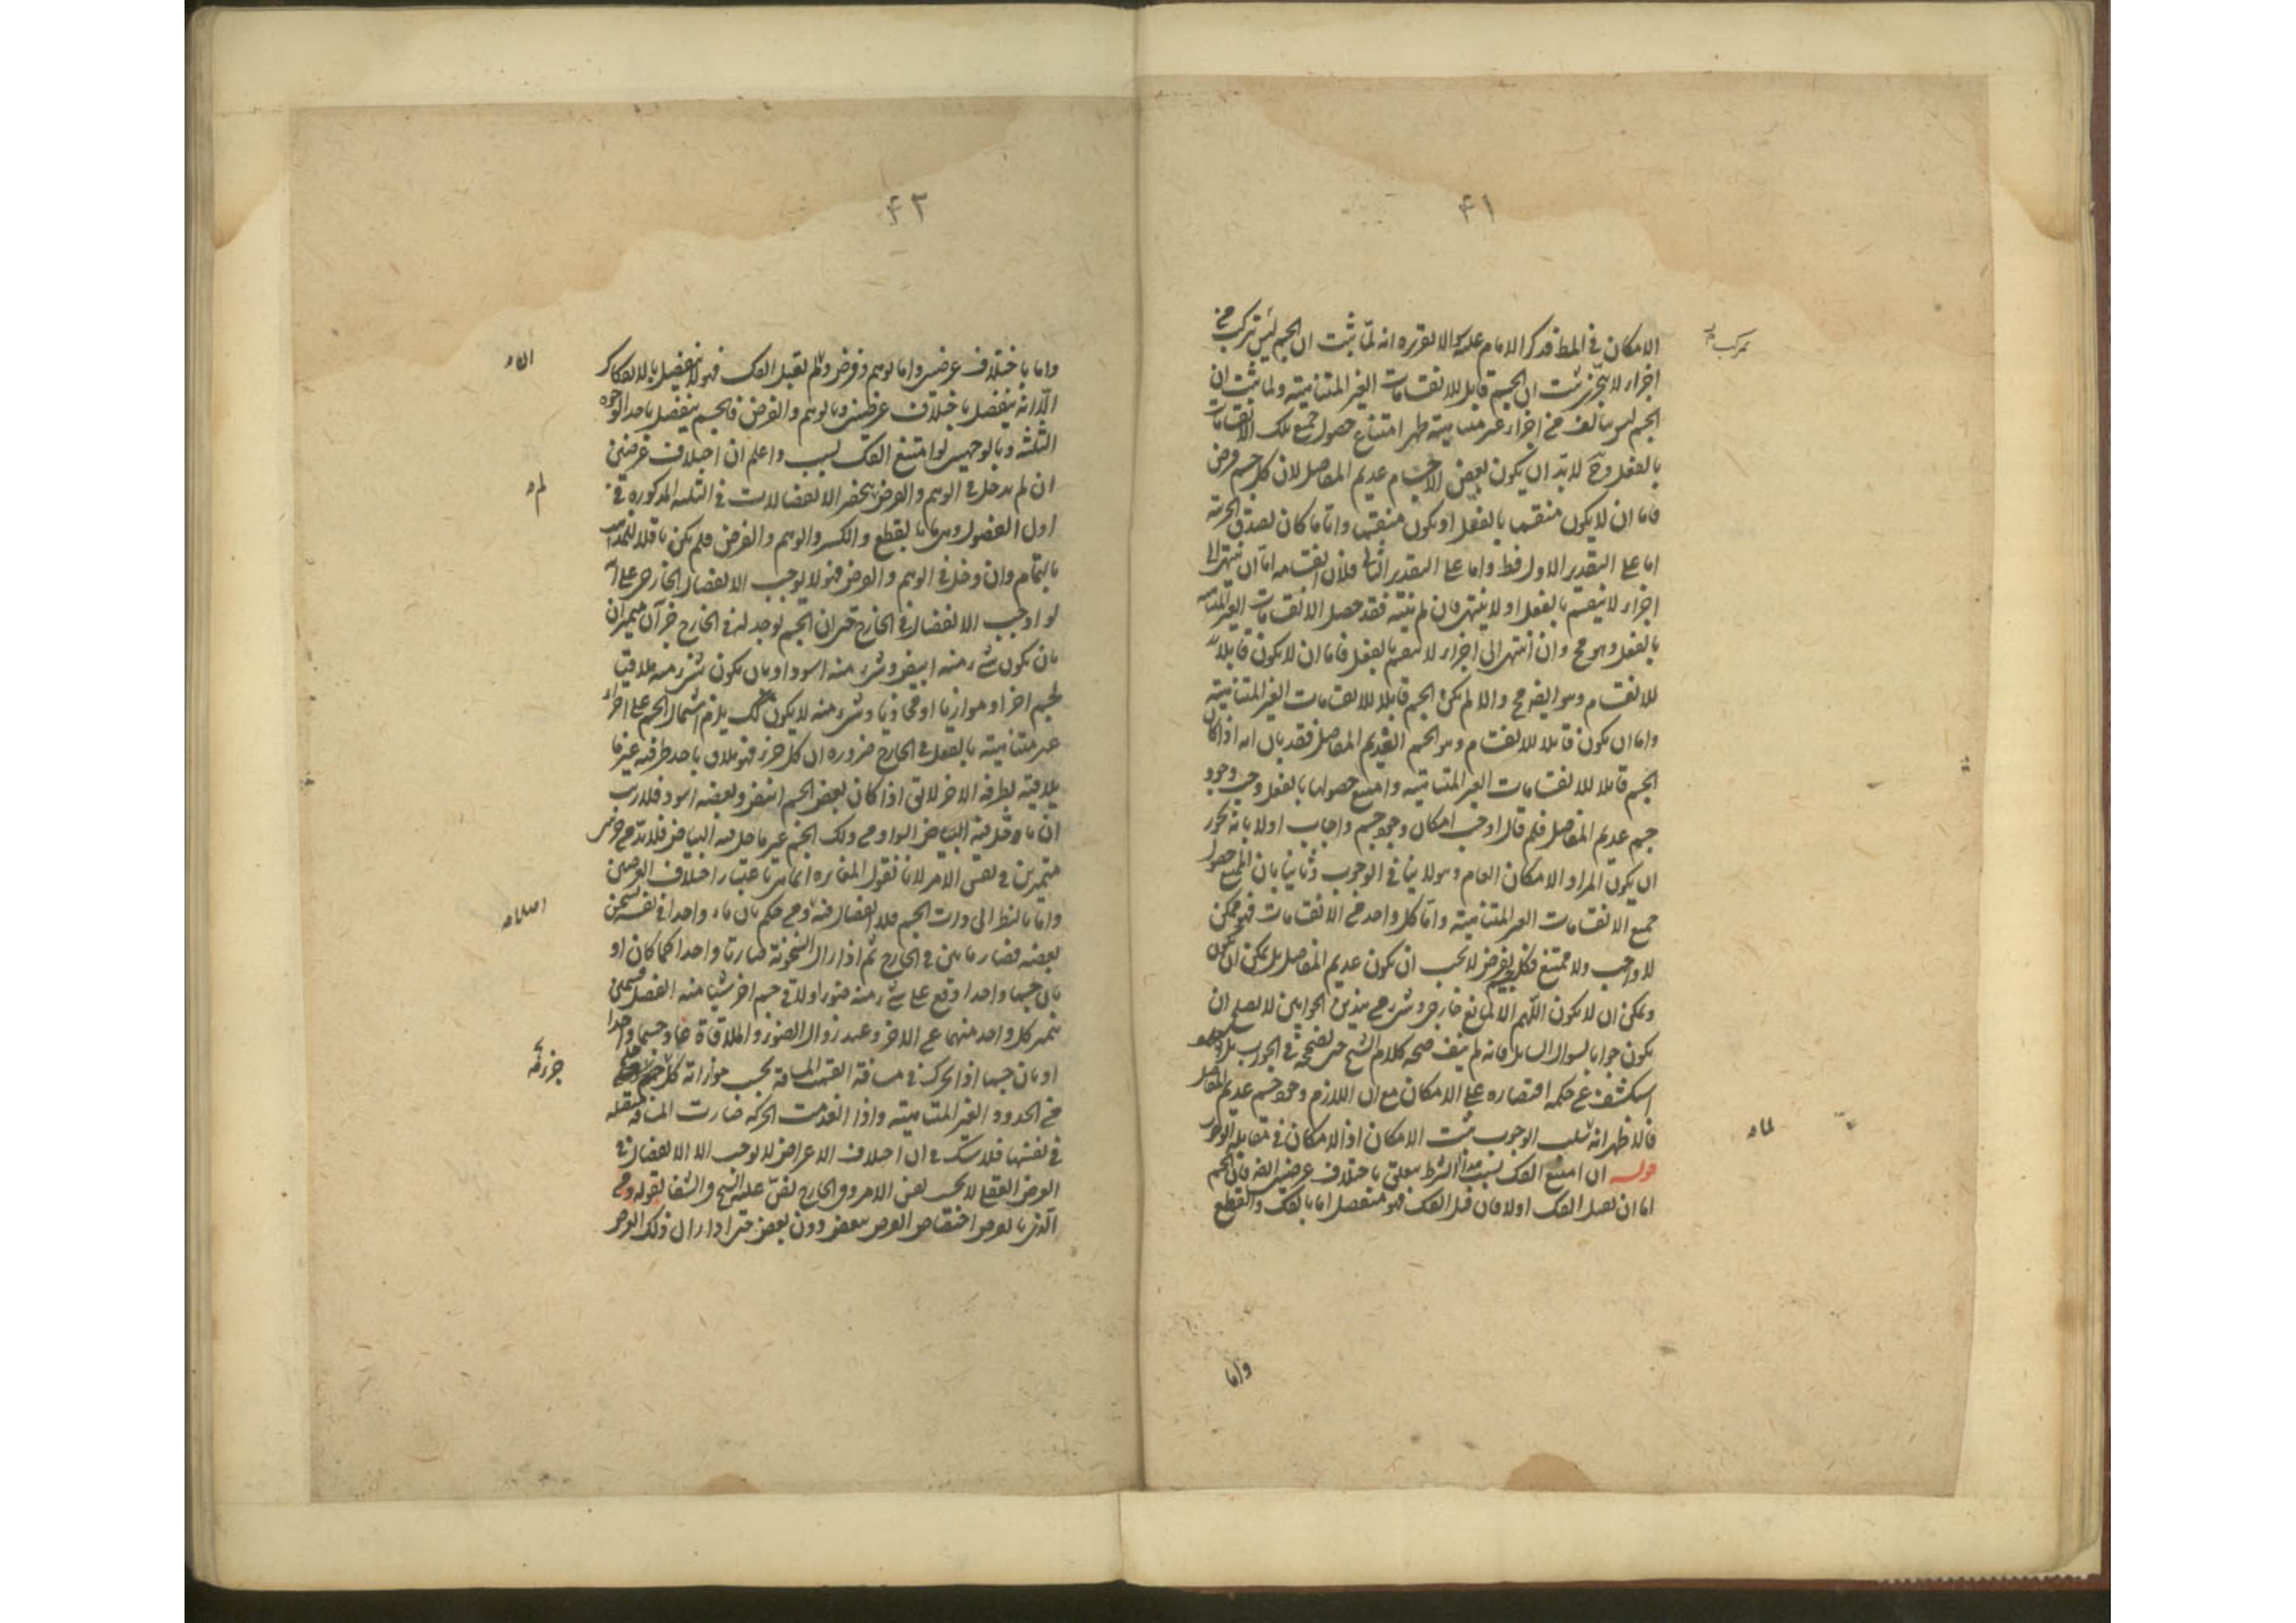 ۴۱
الامكان فى المط فذكر الامام عليه الا لتقريره انه لمّا ثبت ان الجسم ليس تركب من
اجزاء لا يتجزى ثبت ان الجسم قابل للانقسامات الغير المتناهية ولما ثبت ان
الجسم ليس بتالف من اجزاء غير متناهية ظهر امتناع حصول جميع تلك الانقسامات
بالفعل وح لا بدّ ان يكون بعض الاجسام عديم المفاصل لان كل جسم فرض
فاما ان لا يكون منقسما بالفعل او يكون منقسما وايّاما كان يصدق الجزئية
اما على التقدير الاول فط واما على التقدير الثانى فلان انقسامه اما ان ينتهى الى
اجزاء لا ينقسم بالفعل او لا ينتهى فان لم ينته فقد حصل الانقسامات الغير المتناهية
بالفعل وهو مح وان انتهى الى اجزاء لا ينقسم بالفعل فاما ان لا يكون قابلا
للانقسام وهو ايضا مح والا لم يكن الجسم قابلا للانقسامات الغير المتناهية
واما ان يكون قابلا للانقسام وهو الجسم العديم المفاصل فقد بان انه اذا كان
الجسم قابلا للانقسامات الغير المتناهية وامتنع حصولها بالفعل وجب وجود
جسم عديم المفاصل فلم قال اوجب امكان وجود جسم واجاب اولا بانه يجوز
ان يكون المراد الامكان العام وهو لا ينافى الوجوب وثانيا بان الممتنع حصول
جميع الانقسامات الغير المتناهية وامّا كل واحد من الانقسامات فهو ممكن
لا واجب ولا ممتنع فكل جسم يفرض لا يجب ان يكون عديم المفاصل بل يمكن ان يكون
ويمكن ان لا يكون اللهم الا لمانع خارجى وشىء من هذين الجوابين لا يصلح ان
يكون جوابا لسوال السايل فانه لم ينف صحة كلام الشيخ حتى يصححه فى الجواب بل
استكشف عن حكمة اقتصاره على الامكان مع ان اللازم وجود جسم عديم المفاصل
فالاظهر انه سلب الوجوب ثبت الامكان اذ الامكان فى مقابلة الوجوب
قوله ان امتنع الفك بسبب هذا الشرط يتعلق باختلاف عرضين الخ فان الجسم
اما ان يقبل الفك اولا فان قبل الفك فهو منفصل اما بالفك والقطع
واما
۴۲
واما باختلاف عرضين واما بوهم وفرض ولم يقبل الفك فهو لا ينفصل بالانفكاك
الّا انه ينفصل باختلاف عرضين وبالوهم والفرض فالجسم ينفصل باحد الوجوه
الثلثة وبالوجهين لو امتنع الفك بسبب واعلم ان اختلاف عرضين
ان لم يدخل فى الوهم والفرض لم ينحصر الانفصالات فى الثلثة المذكورة فى
اول الفصول وهى ما بالقطع والكسر والوهم والفرض فلم يكن ناقلا للمذاهب
بالتمام وان دخل فى الوهم والفرض فهو لا يوجب الانفصال الخارجى على انه
لو اوجب الانفصال فى الخارج حتى ان الجسم يوجد له فى الخارج جزآن متميزان
بان يكون شىء منه ابيض وشىء منه اسود او بان يكون شىء منه ملاقيا
لجسم اخر او موازيا او محاذيا وشىء منه لا يكون كك يلزم اشتمال الجسم على اجزاء
غير متناهية بالفعل فى الخارج ضرورة ان كل جزء فهو يلاقى باحد طرفيه غير ما
يلاقيه بطرفه الاخر لا يق اذا كان بعض الجسم ابيض وبعضه اسود فلا ريب
ان ما دخل فيه البياض السواد من ذلك الجسم غير ما حل فيه البياض فلا بدّ من جزئين
متميزين فى نفس الامر لانا نقول المغايرة انما هى باعتبار اختلاف العرضين
واما بالنظر الى ذات الجسم فلا انفصال فيه ومن حكم بان ماء واحدا فى نفسه يسخن
بعضه فصار مائين فى الخارج ثم اذا زال السخونة صارتا واحدا كما كان او
بان جسما واحدا وقع على شىء منه ضوء او لاقى جسم اخر شيئا منه انفصل قسمين
يتميز كل واحد منهما عن الاخر وعند زوال الضوء والملاقاة عاد جسما واحدا
او بان جسما اذا تحرك فى مسافة انقسمت المسافة بحسب موازاته كل
من الحدود الغير المتناهية واذا انعدمت الحركة صارت المسافة متصلة
فى نفسها فلا شك فى ان اختلاف الاعراض لا يوجب الا الانفصال فى
الفرض العقلى لا بحسب نفس الامر وفى الخارج نص عليه الشيخ فى الشفا بقوله ومن
الذى بالعرض اختصاص العرض ببعض دون بعض حتى اذا زال ذلك العرض